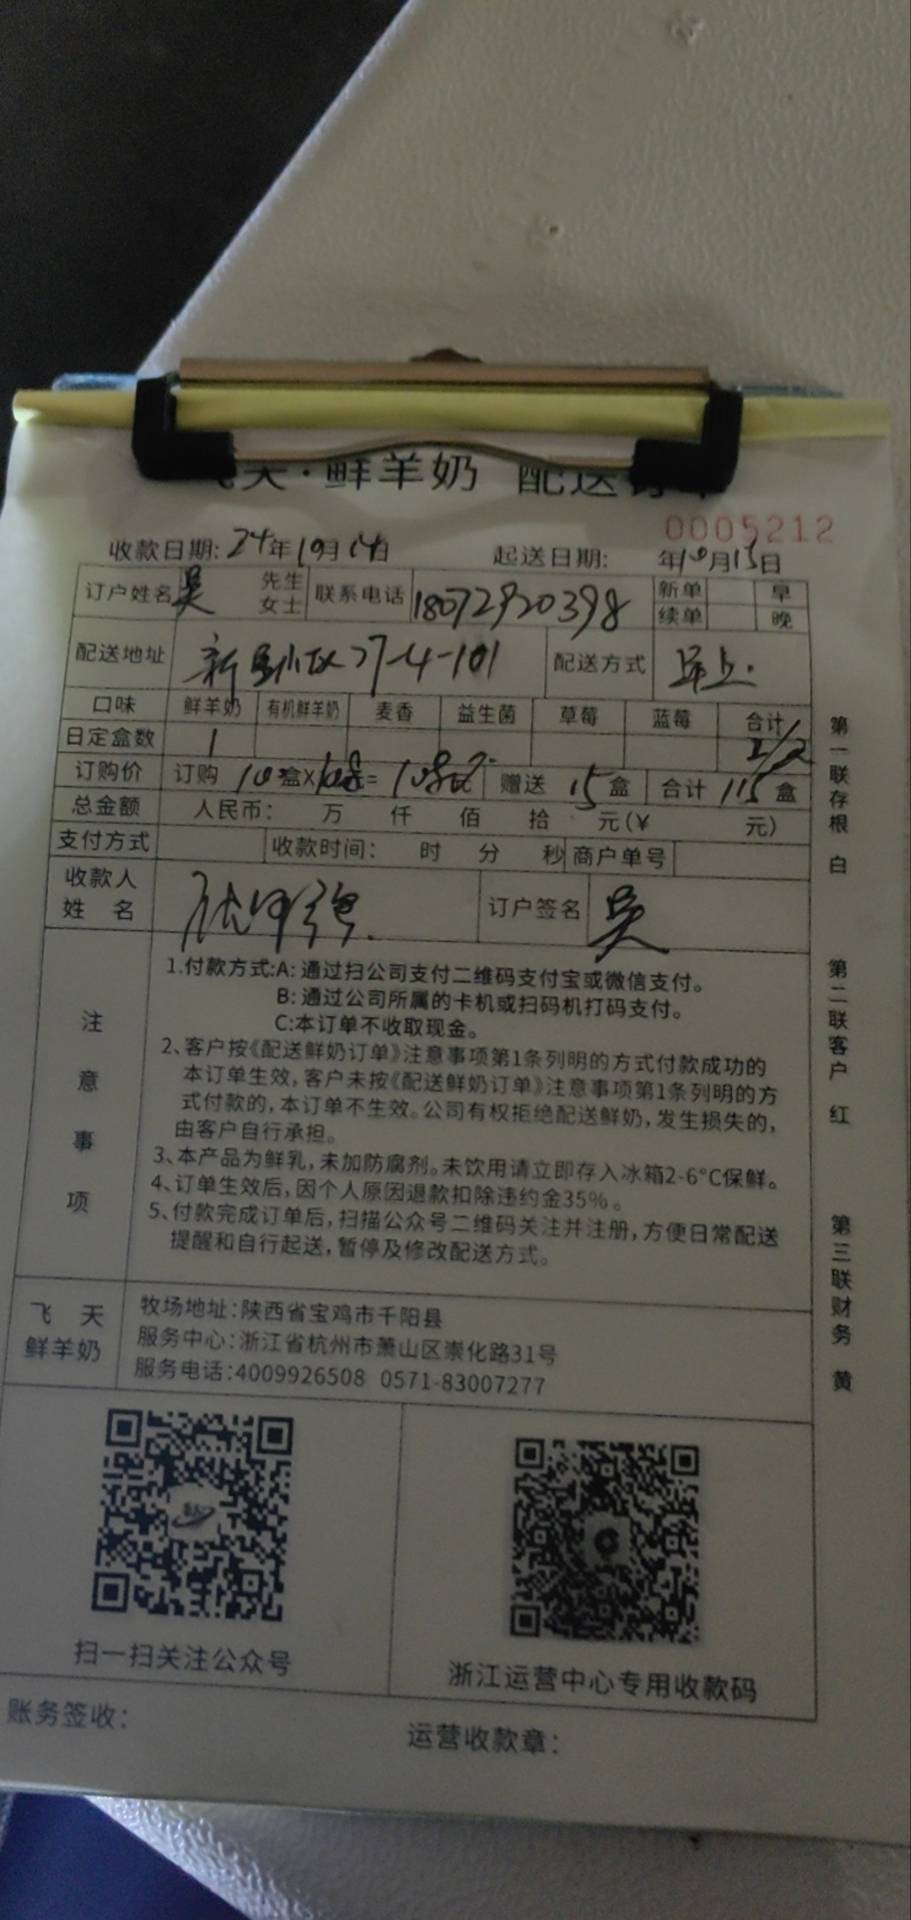 飞天·鲜羊奶 配送订单
0005212
收款日期: 24年10月14日 起送日期: 年10月15日
订户姓名 吴 先生 女士 联系电话 18072920398 新单 早
续单 晚
配送地址 27-4-101 配送方式 早上.
口味 鲜羊奶 有机鲜羊奶 麦香 益生菌 草莓 蓝莓 合计
日定盒数 1
订购价 订购 100盒X = 赠送 15盒 合计 115盒
总金额 人民币: 万 仟 佰 拾 元(¥ 元)
支付方式 收款时间: 时 分 秒 商户单号
收款人
姓 名 订户签名 吴
注意事项
1.付款方式:A: 通过扫公司支付二维码支付宝或微信支付。
B: 通过公司所属的卡机或扫码机打码支付。
C:本订单不收取现金。
2、客户按《配送鲜奶订单》注意事项第1条列明的方式付款成功的
本订单生效,客户未按《配送鲜奶订单》注意事项第1条列明的方
式付款的,本订单不生效。公司有权拒绝配送鲜奶,发生损失的,
由客户自行承担。
3、本产品为鲜乳,未加防腐剂。未饮用请立即存入冰箱2-6°C保鲜。
4、订单生效后,因个人原因退款扣除违约金35%。
5、付款完成订单后,扫描公众号二维码关注并注册,方便日常配送
提醒和自行起送,暂停及修改配送方式。
飞 天
鲜羊奶
牧场地址:陕西省宝鸡市千阳县
服务中心:浙江省杭州市萧山区崇化路31号
服务电话:4009926508 0571-83007277
扫一扫关注公众号
浙江运营中心专用收款码
账务签收:
运营收款章:
第一联存根 白
第二联客户 红
第三联财务 黄